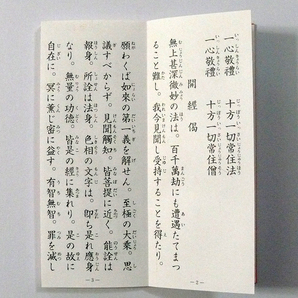 一心敬禮　十方一切常住法
一心敬禮　十方一切常住僧
開經偈
無上甚深微妙の法は。百千萬劫にも遭遇たてまつ
ること難し。我今見聞し受持することを得たり。
願わくば如來の第一義を解せん。至極の大乘。思
議すべからず。見聞觸知。皆菩提に近く。能詮は
報身。所詮は法身。色相の文字は。即ち是れ應身
なり。無量の功德。皆是の經に集れり。是の故に
自在に。冥に薰じ密に益す。有智無智。罪を滅し